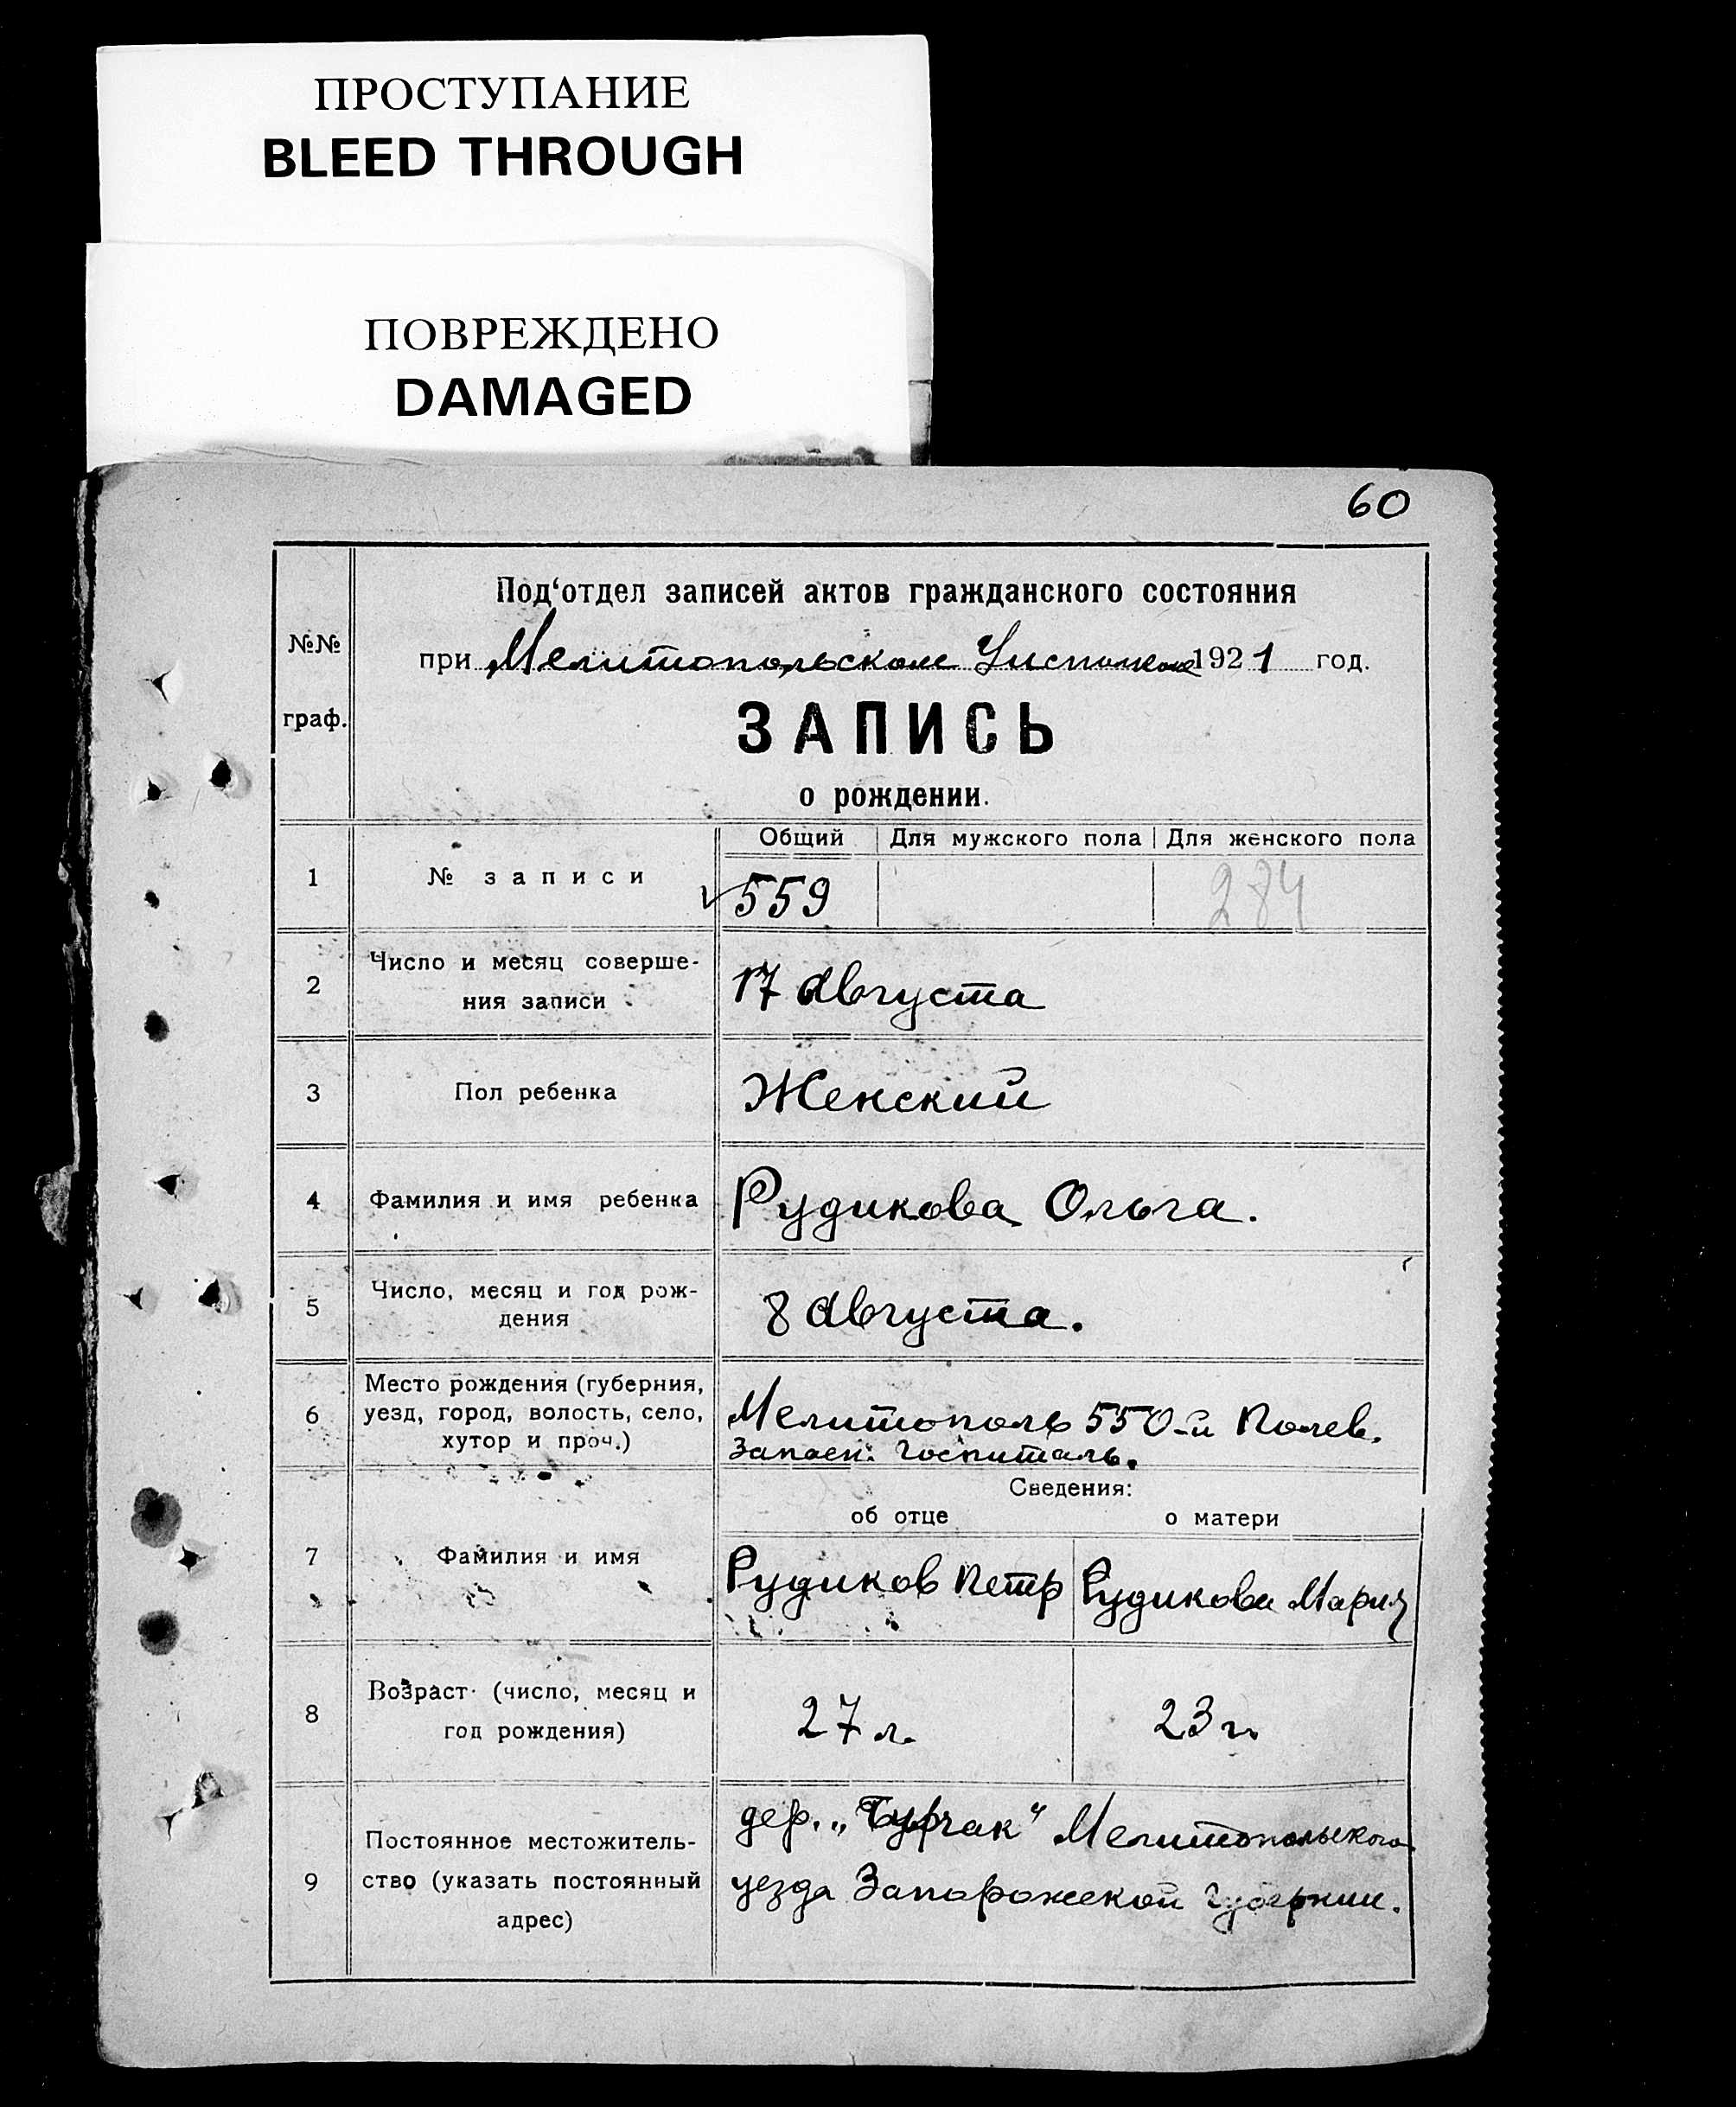 ПРОСТУПАНИЕ
BLEED THROUGH
ПОВРЕЖДЕНО
DAMAGED
60
№№
граф.
Под‘отдел записей актов гражданского состояния
при Мелитопольском Уисполкоме 1921 год.
ЗАПИСЬ
о рождении.
Общий Для мужского пола Для женского пола
1 № записи 559 284
2 Число и месяц соверше-
ния записи 17 Августа
3 Пол ребенка Женский
4 Фамилия и имя ребенка Рудикова Ольга.
5 Число, месяц и год рож-
дения 8 Августа.
6 Место рождения (губерния,
уезд, город, волость, село,
хутор и проч.) Мелитополь 550-й Полев.
Запасн. Госпиталь.
Сведения:
об отце о матери
7 Фамилия и имя Рудиков Петр Рудикова Мария
8 Возраст (число, месяц и
год рождения) 27 л. 23 г.
9 Постоянное местожитель-
ство (указать постоянный
адрес) дер. Мелитопольского
уезда Запорожской Губернии.